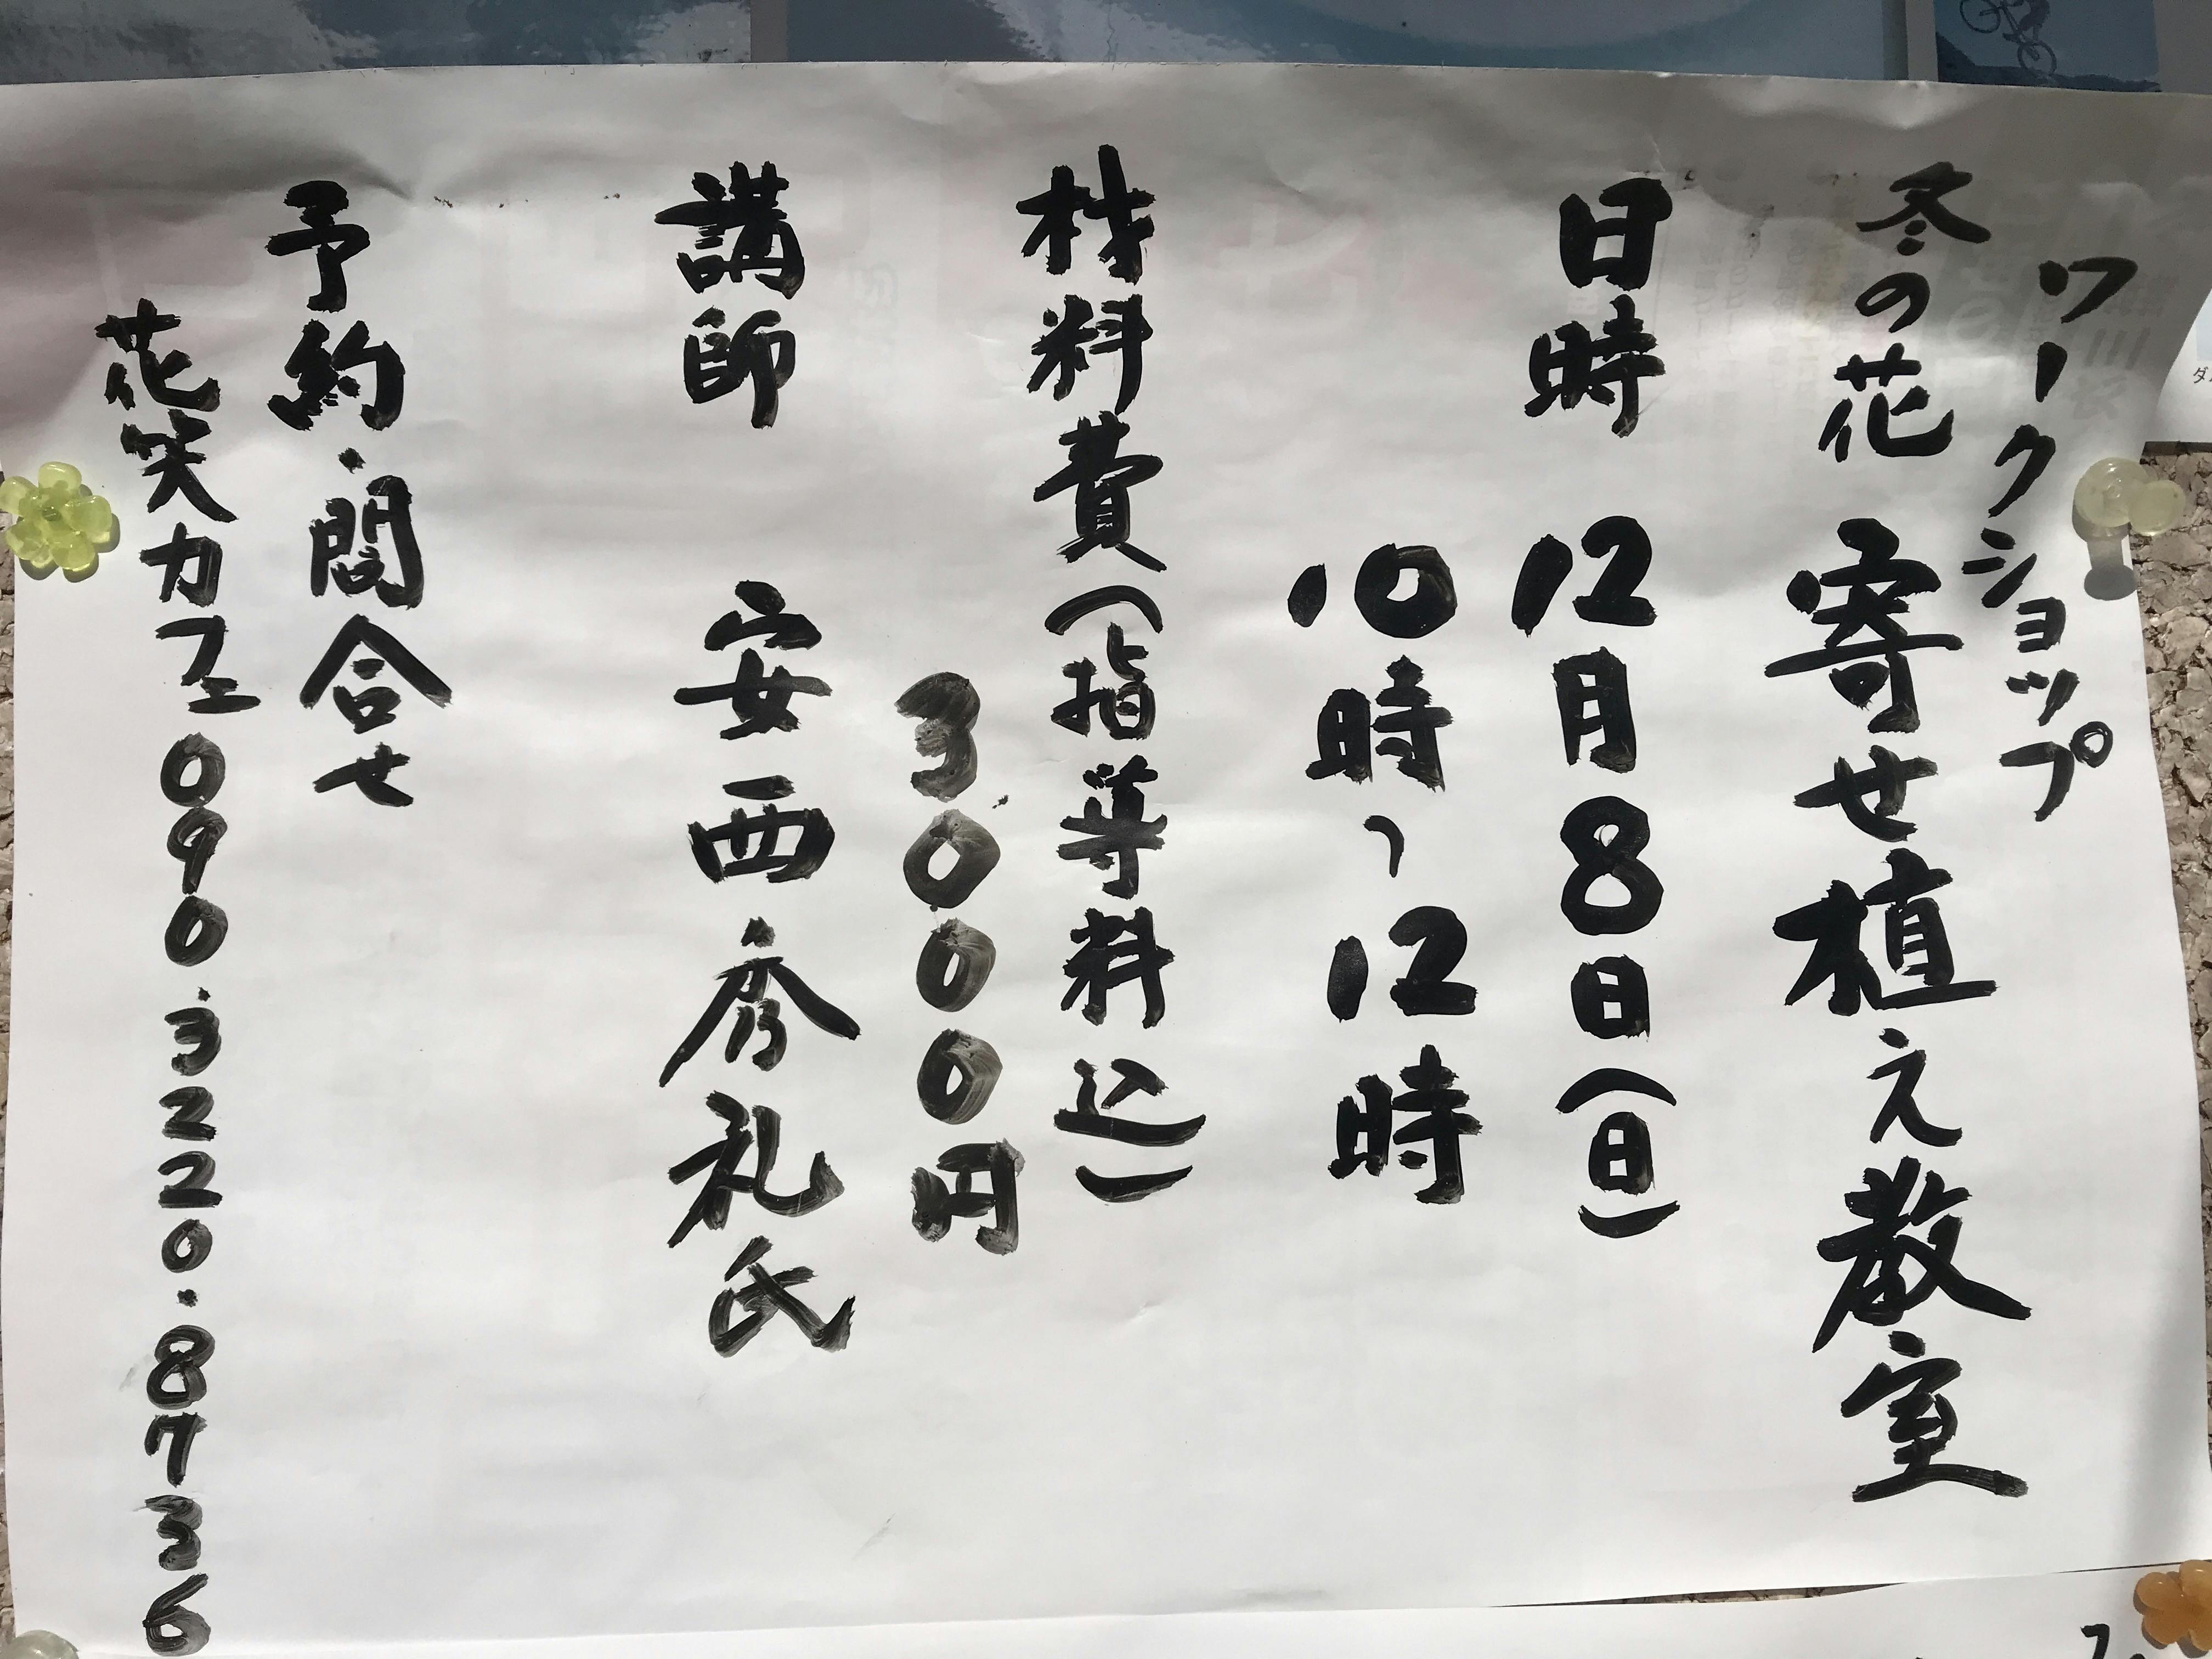 ワークショップ
冬の花 寄せ植え教室
日時 12月8日(日)
10時~12時
材料費(指導料込)
3000円
講師 安西秀礼氏
予約・問合せ
花笑カフェ 090.3220.8736